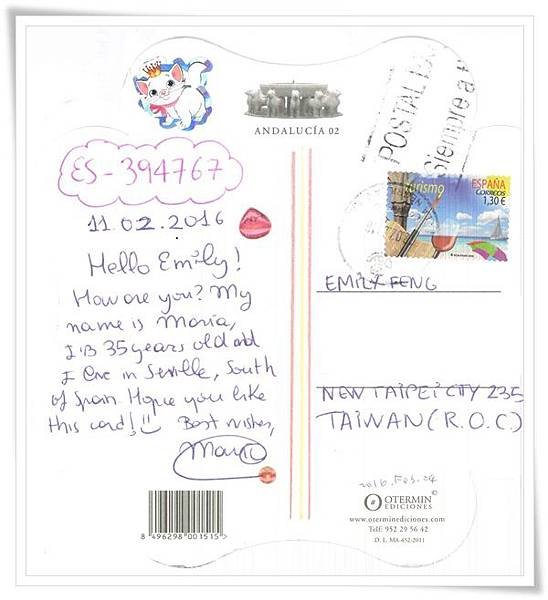 ANDALUCÍA 02
POSTAL
Siempre a
turismo
ESPAÑA
CORREOS
1,30 €
ES-394767
11.02.2016
Hello Emily!
How are you? My
name is María,
I'm 35 years old and
I live in Seville, South
of Spain. Hope you like
this card! Best wishes,
María
EMILY FENG
NEW TAIPEI CITY 235
TAIWAN (R.O.C)
2016. Feb. 24
OTERMIN
EDICIONES
www.oterminediciones.com
Telf: 952 29 56 42
D. L. MA-452-2011
8 496298 001515